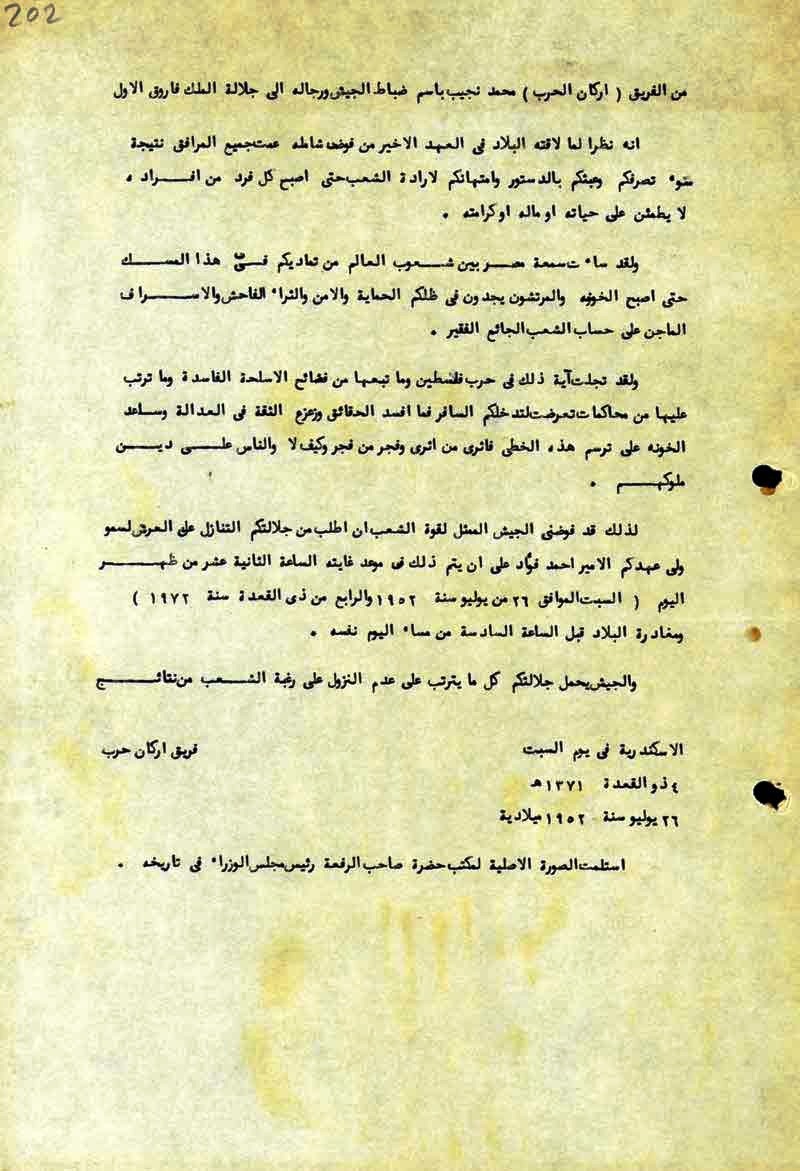 202
من الفريق ( اركان الحرب ) محمد نجيب باسم ضباط الجيش ورجاله الى جلالة الملك فاروق الاول
انه نظرا لما لاقته البلاد فى العهد الاخير من فوضى شاملة عمت جميع المرافق نتيجة
سوء تصرفكم وعبثكم بالدستور وامتهانكم لارادة الشعب حتى اصبح كل فرد من افـــراده
لا يطمئن على حياته او ماله او كرامته .
ولقد ساءت سمعة مصـر بين شـعوب العالم من تماديكم فـى هذا المسـلك
حتى اصبح الخونه والمرتشون يجدون فى ظلكم الحماية والامن والثراء الفاحش والاســـراف
الماجن على حساب الشعب الجائع الفقير .
ولقد تجلت آية ذلك فى حرب فلسطين وما تبعها من فضائح الاسلحة الفاسدة وما ترتب
عليها من محاكمات تعرضت لتدخلكم السافر مما افسد الحقائق وزعزع الثقة فى العدالة وساعد
الخونه على ترسم هذه الخطى فاثرى من اثرى وفجر من فجر وكيف لا والناس علــى ديـــن
ملوكهـــم .
لذلك قد فوضنى الجيش الممثل لقوة الشعب ان اطلب من جلالتكم التنازل على العرش لسمو
ولى عهدكم الامير احمد فؤاد على ان يتم ذلك فى موعد غايته الساعة الثانية عشر من ظهـــر
اليوم ( السبت الموافق ٢٦ من يوليو سنة ١٩٥٢ والرابع من ذى القعدة سنة ١٩٧٢ )
ومغادرة البلاد قبل الساعة السادسة من مساء اليوم نفسه .
والجيش يحمل جلالتكم كل ما يترتب على عدم النزول على رغبة الشـعب من نتائـــج
الاسكندرية فى يوم السبت
فريق اركان حرب
٤ ذو القعدة ١٣٧١ هـ
٢٦ يوليو سنة ١٩٥٢ ميلادية
استلمت الصورة الاصلية لمكتب حضرة صاحب الرفعة رئيس مجلس الوزراء فى تاريخه .